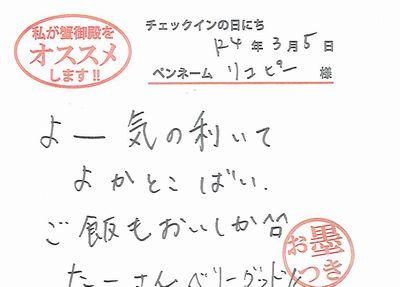 私が蟹御殿を
オススメ
します!!
チェックインの日にち
R4年3月5日
ペンネーム リコピー 様
よー気の利いて
よかとこばい.
ご飯もおいしか^^
お墨つき
たーさんベリーグッド!!